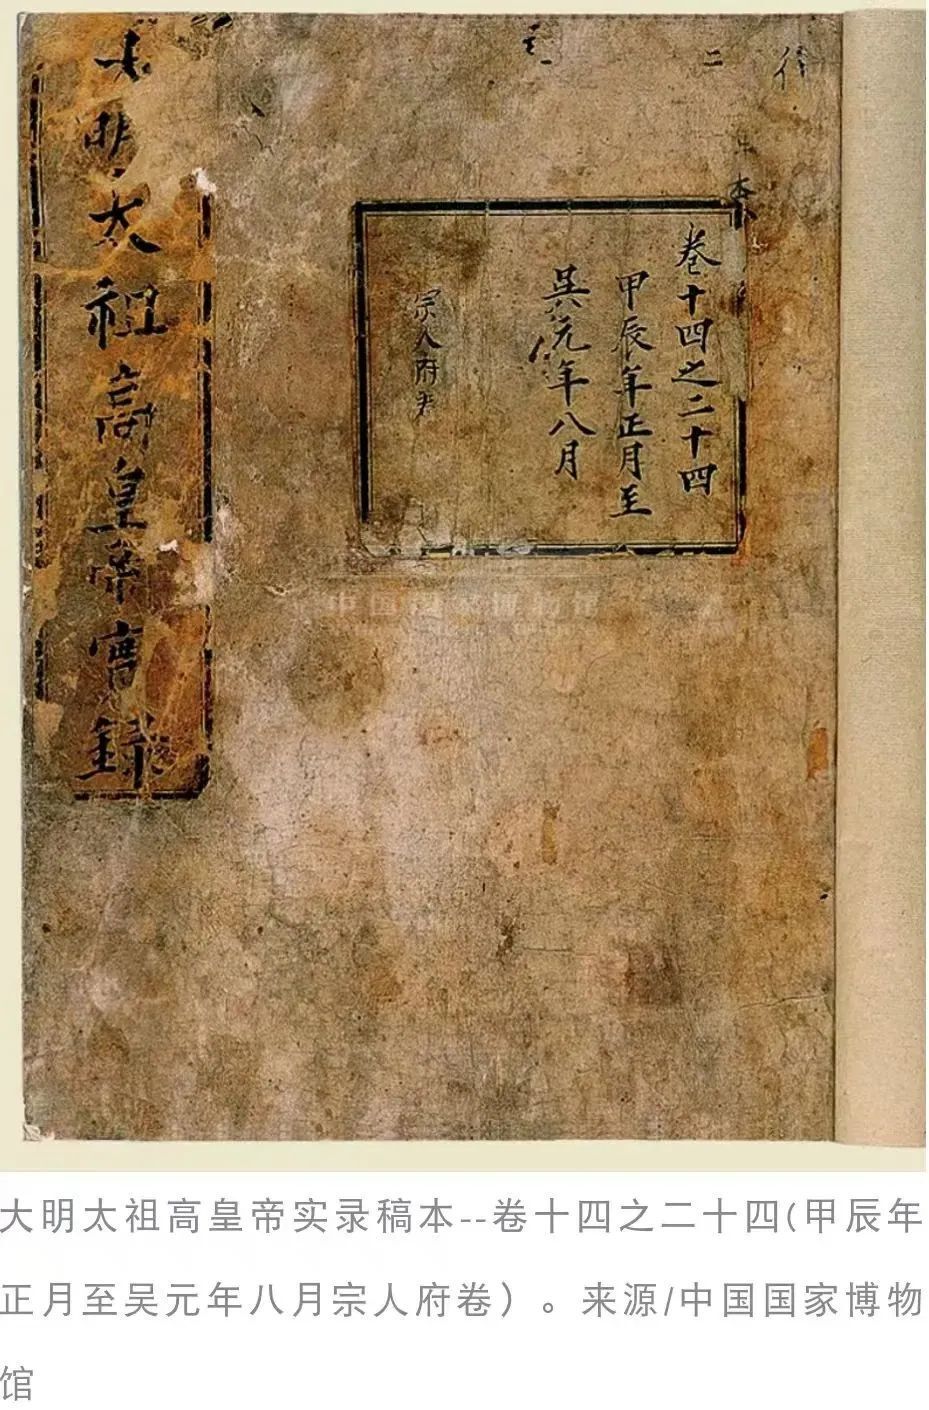 大明太祖高皇帝實錄
卷十四之二十四
甲辰年正月至
吳元年八月
宗人府
二
中国国家博物馆
大明太祖高皇帝实录稿本--卷十四之二十四(甲辰年
正月至吴元年八月宗人府卷）。来源/中国国家博物
馆